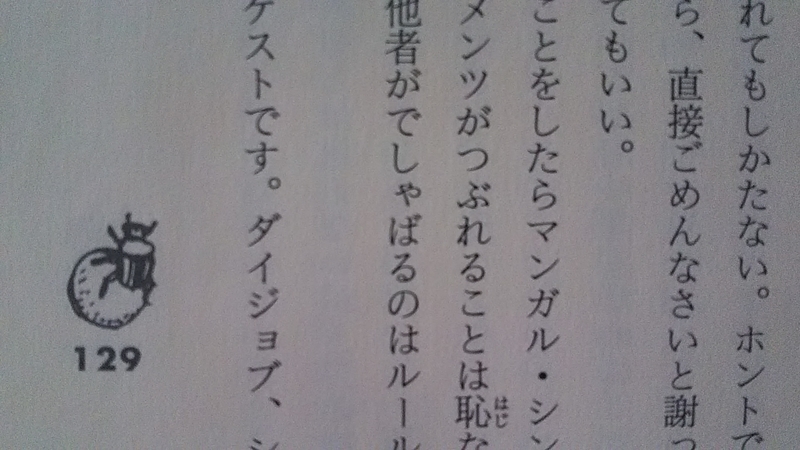 れてもしかたない。ホントで
ら、直接ごめんなさいと謝っ
てもいい。
ことをしたらマンガル・シン
メンツがつぶれることは恥な
はじ
他者がでしゃばるのはルール
ケストです。ダイジョブ、シ
129